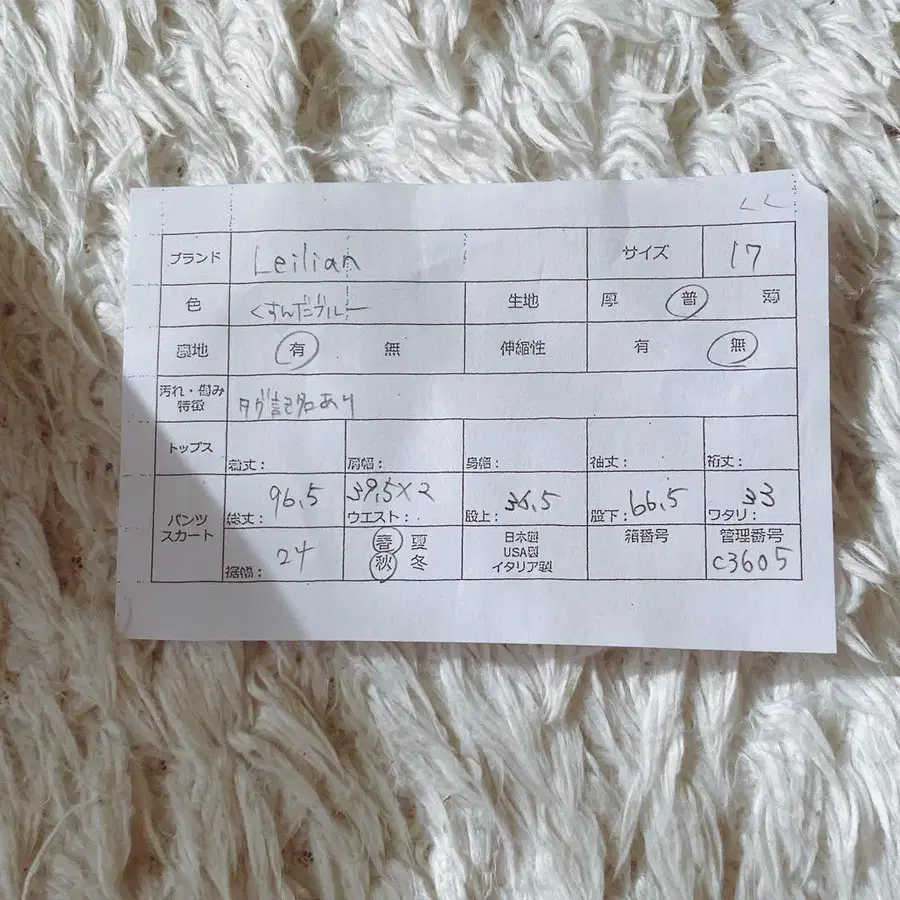 LL
ブランド Leilian サイズ 17
色 くすんだブルー 生地 厚 普 薄
裏地 有 無 伸縮性 有 無
汚れ・傷み
特徴 タグ記名あり
トップス 着丈： 肩幅： 身幅： 袖丈： 裄丈：
パンツ
スカート
総丈： 96.5 ウエスト： 39.5×2 股上： 36.5 股下： 66.5 ワタリ： 33
裾幅： 24
春 夏
秋 冬
日本製
USA製
イタリア製
箱番号
管理番号
C3605